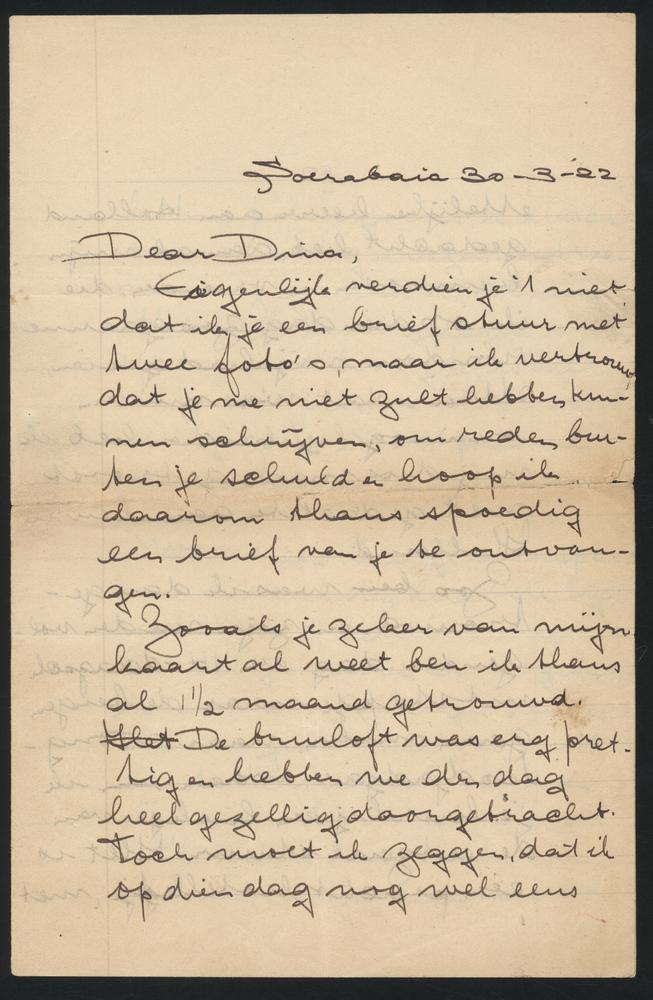 Soerabaia 30-3-22
Dear Dina,
Eigenlijk verdien je 't niet
dat ik je een brief stuur met
twee foto's, maar ik vertrouw,
dat je me niet zult hebben kun-
nen schrijven, om reden bui-
ten je schuld en hoop ik
daarom thans spoedig
een brief van je te ontvan-
gen.
Zooals je zeker van mijn
kaart al weet ben ik thans
al 1 1/2 maand getrouwd.
Het De bruiloft was erg pret-
tig en hebben we den dag
heel gezellig doorgebracht.
Toch moet ik zeggen, dat ik
op dien dag nog wel eens